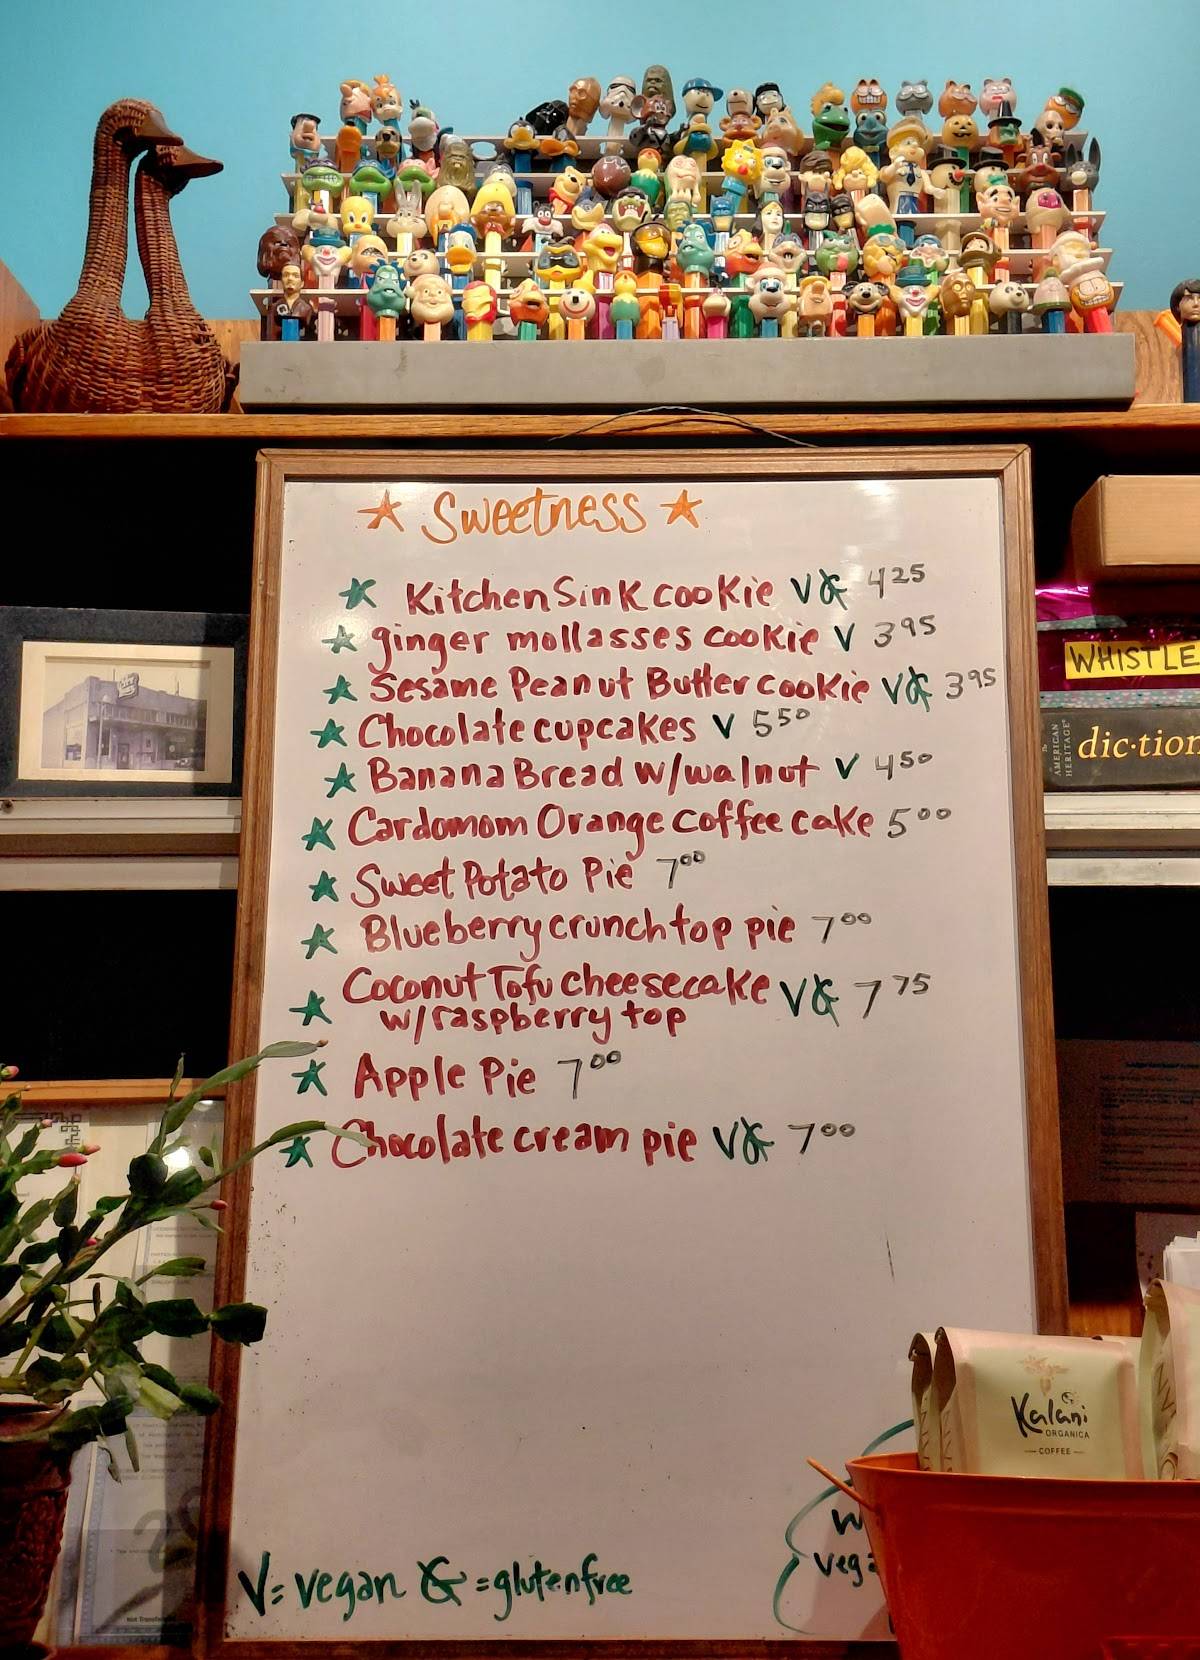 ★ Sweetness ★
★ Kitchen Sink cookie V G 4 25
★ ginger mollasses cookie V 3 95
★ Sesame Peanut Butter cookie V G 3 95
★ Chocolate cupcakes V 5 50
★ Banana Bread w/walnut V 4 50
★ Cardomom Orange coffee cake 5 00
★ Sweet Potato Pie 7 00
★ Blueberry crunch top pie 7 00
★ Coconut Tofu cheesecake V G 7 75
w/raspberry top
★ Apple Pie 7 00
★ Chocolate cream pie V G 7 00
V = vegan G = gluten free
WHISTLE
The AMERICAN HERITAGE
dic·tion
Kalani
ORGANICA
COFFEE